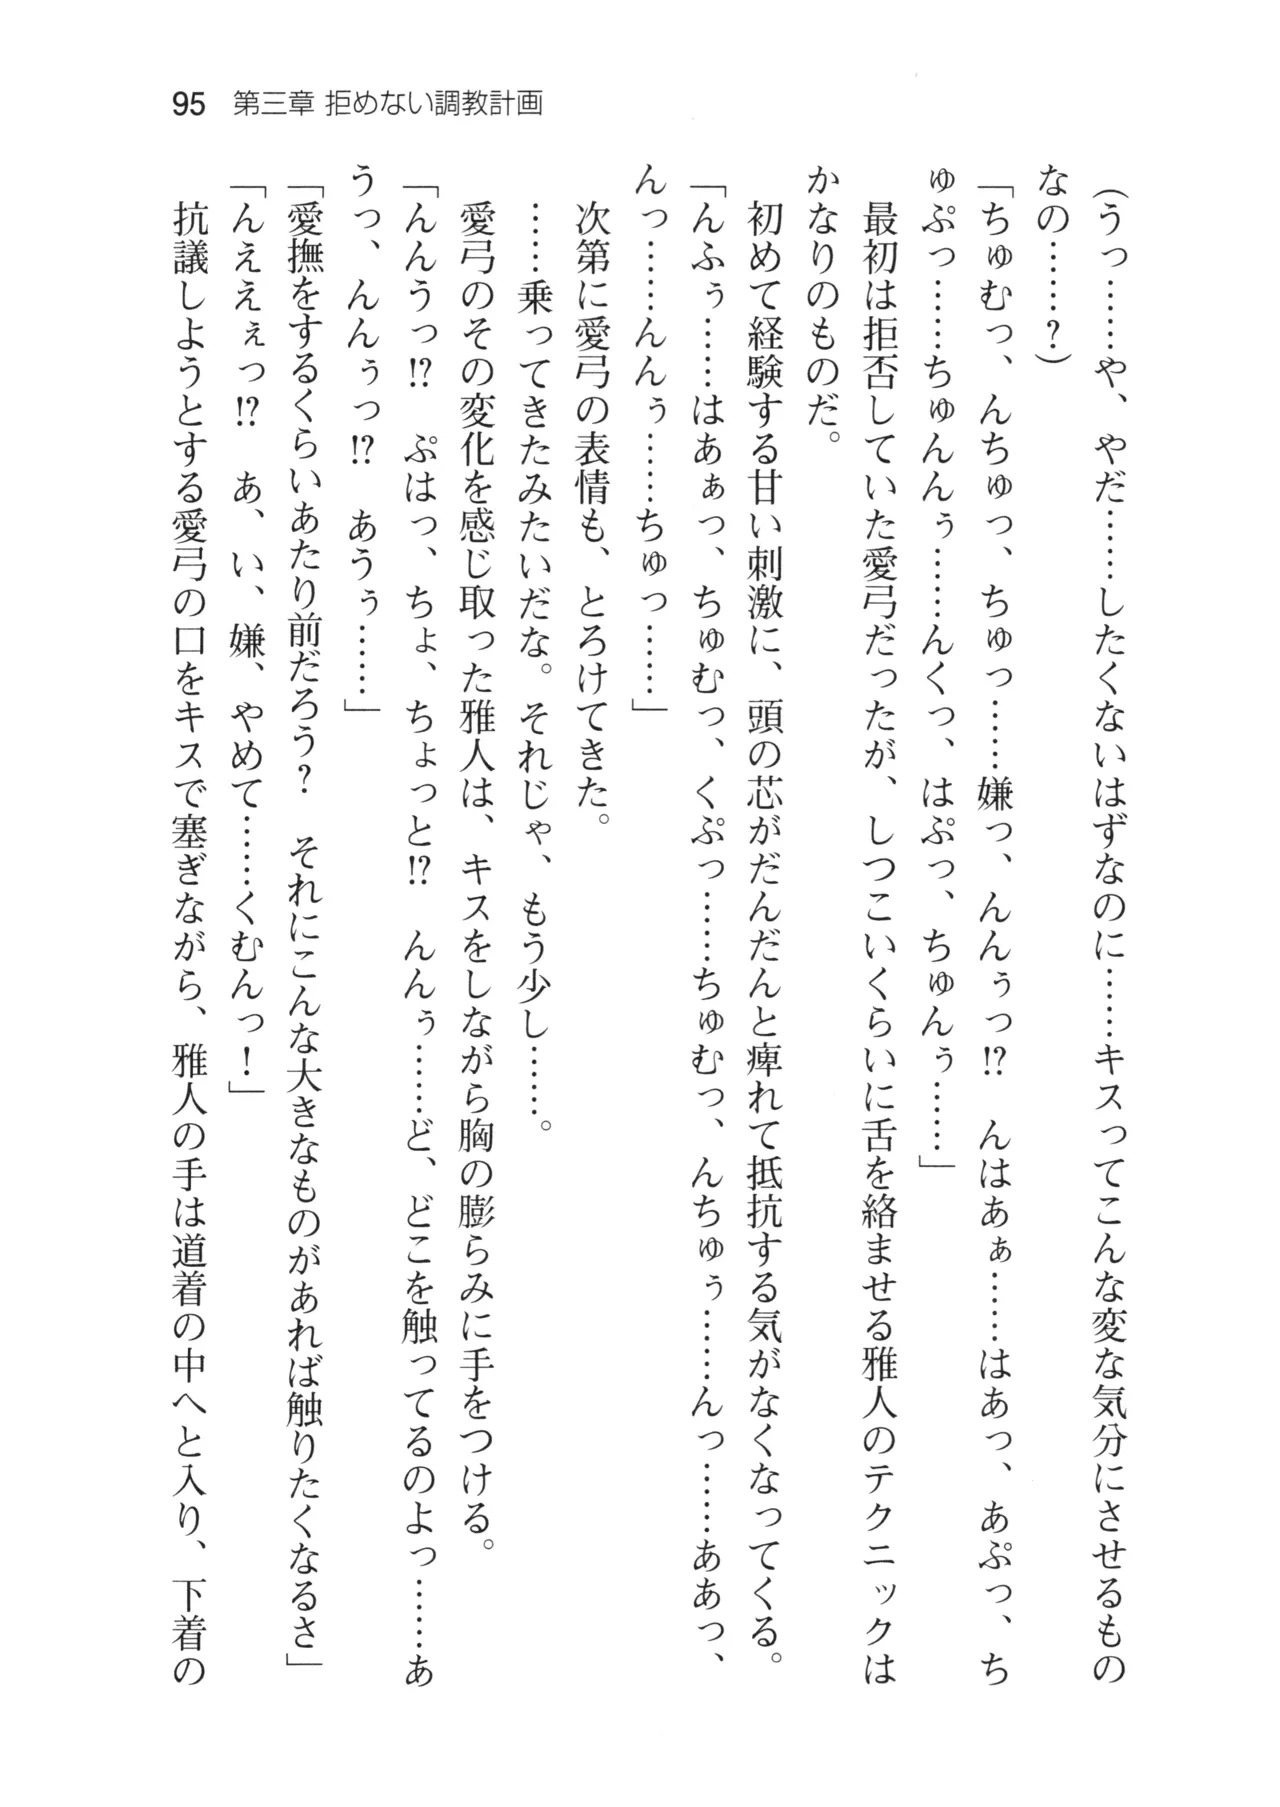 95 第三章 拒めない調教計画
(うっ……や、やだ……したくないはずなのに……キスってこんな変な気分にさせるもの
なの……?)
「ちゅむっ、んちゅっ、ちゅっ……嫌っ、んんぅっ!? んはあぁ……はあっ、あぷっ、ち
ゅぷっ……ちゅんんぅ……んくっ、はぷっ、ちゅんぅ……」
最初は拒否していた愛弓だったが、しつこいくらいに舌を絡ませる雅人のテクニックは
かなりのものだ。
初めて経験する甘い刺激に、頭の芯がだんだんと痺れて抵抗する気がなくなってくる。
「んふぅ……はあぁっ、ちゅむっ、くぷっ……ちゅむっ、んちゅぅ……んっ……ああっ、
んっ……んんぅ……ちゅっ……」
次第に愛弓の表情も、とろけてきた。
……乗ってきたみたいだな。それじゃ、もう少し……。
愛弓のその変化を感じ取った雅人は、キスをしながら胸の膨らみに手をつける。
「んんうっ!? ぷはっ、ちょ、ちょっと!? んんぅ……ど、どこを触ってるのよっ……あ
うっ、んんぅっ!? あうぅ……」
「愛撫をするくらいあたり前だろう? それにこんな大きなものがあれば触りたくなるさ」
「んええぇっ!? あ、い、嫌、やめて……くむんっ!」
抗議しようとする愛弓の口をキスで塞ぎながら、雅人の手は道着の中へと入り、下着の